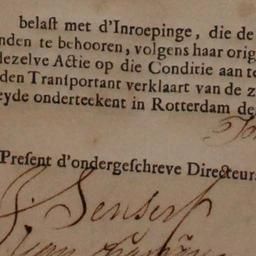 belast met d'Inroepinge, die de
nden te behooren, volgens haar orig
dezelve Actie op die Conditie aan te
den Transportant verklaart van de z
eyde onderteekent in Rotterdam de
Present d'ondergeschreve Directeur